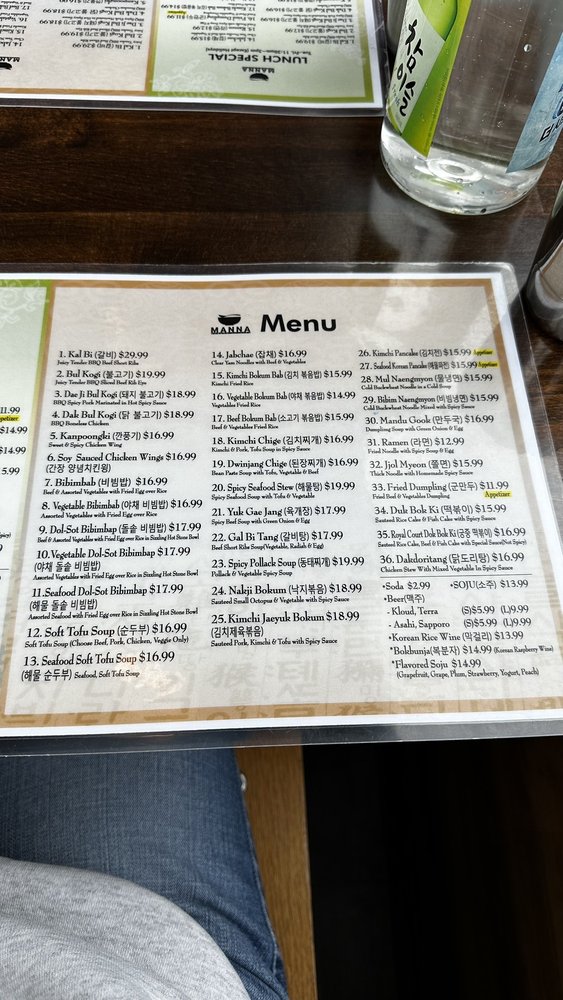 LUNCH SPECIAL
MANNA
참이슬
11.99
$14.99
$14.99
5.99
MANNA Menu
1. Kal Bi (갈비) $29.99
Juicy Tender BBQ Beef Short Ribs
2. Bul Kogi (불고기) $19.99
Juicy Tender BBQ Sliced Beef Rib Eye
3. Dae Ji Bul Kogi (돼지 불고기) $18.99
BBQ Spicy Pork Marinated in Hot Spicy Sauce
4. Dak Bul Kogi (닭 불고기) $18.99
BBQ Boneless Chicken
5. Kanpoongki (깐풍기) $16.99
Sweet & Spicy Chicken Wing
6. Soy Sauced Chicken Wings $16.99
(간장 양념치킨윙)
7. Bibimbab (비빔밥) $16.99
Beef & Assorted Vegetables with Fried Egg over Rice
8. Vegetable Bibimbab (야채 비빔밥) $16.99
Assorted Vegetables with Fried Egg over Rice
9. Dol-Sot Bibimbap (돌솥 비빔밥) $17.99
Beef & Assorted Vegetables with Fried Egg over Rice in Sizzling Hot Stone Bowl
10. Vegetable Dol-Sot Bibimbap $17.99
(야채 돌솥 비빔밥)
Assorted Vegetables with Fried Egg over Rice in Sizzling Hot Stone Bowl
11. Seafood Dol-Sot Bibimbap $17.99
(해물 돌솥 비빔밥)
Assorted Seafood with Fried Egg over Rice in Sizzling Hot Stone Bowl
12. Soft Tofu Soup (순두부) $16.99
Soft Tofu Soup (Choose Beef, Pork, Chicken, Veggie Only)
13. Seafood Soft Tofu Soup $16.99
(해물 순두부) Seafood, Soft Tofu Soup
14. Jabchae (잡채) $16.99
Clear Yam Noodles with Beef & Vegetables
15. Kimchi Bokum Bab (김치 볶음밥) $15.99
Kimchi Fried Rice
16. Vegetable Bokum Bab (야채 볶음밥) $14.99
Vegetables Fried Rice
17. Beef Bokum Bab (소고기 볶음밥) $15.99
Beef & Vegetables Fried Rice
18. Kimchi Chige (김치찌개) $16.99
Kimchi & Pork, Tofu Soup in Spicy Sauce
19. Dwinjang Chige (된장찌개) $16.99
Bean Paste Soup with Tofu, Vegetable & Beef
20. Spicy Seafood Stew (해물탕) $19.99
Spicy Seafood Soup with Tofu & Vegetable
21. Yuk Gae Jang (육개장) $17.99
Spicy Beef Soup with Green Onion & Egg
22. Gal Bi Tang (갈비탕) $17.99
Beef Short Ribs Soup(Vegetable, Radish & Egg)
23. Spicy Pollack Soup (동태찌개) $19.99
Pollack & Vegetable Spicy Soup
24. Nakji Bokum (낙지볶음) $18.99
Sauteed Small Octopus & Vegetable with Spicy Sauce
25. Kimchi Jaeyuk Bokum $18.99
(김치제육볶음)
Sauteed Pork, Kimchi & Tofu with Spicy Sauce
26. Kimchi Pancake (김치전) $15.99 Appetizer
27. Seafood Korean Pancake (해물파전) $15.99 Appetizer
28. Mul Naengmyon (물냉면) $15.99
Cold Buckwheat Noodle in a Cold Soup
29. Bibim Naengmyon (비빔냉면) $15.99
Cold Buckwheat Noodle Mixed with Spicy Sauce
30. Mandu Gook (만두국) $16.99
Dumpling Soup with Green Onion & Egg
31. Ramen (라면) $12.99
Fried Noodle with Spicy Soup & Egg
32. Jjol Myeon (쫄면) $15.99
Thick Noodle with Homemade Spicy Sauce
33. Fried Dumpling (군만두) $11.99
Fried Beef & Vegetables Dumpling Appetizer
34. Duk Bok Ki (떡볶이) $15.99
Sauteed Rice Cake & Fish Cake with Spicy Sauce
35. Royal Court Duk Bok Ki (궁중 떡볶이) $16.99
Sauteed Rice Cake, Beef & Fish Cake with Special Sauce(Not Spicy)
36. Dakdoritang (닭도리탕) $16.99
Chicken Stew With Mixed Vegetable In Spicy Sauce
•Soda $2.99 •SOJU(소주) $13.99
•Beer(맥주)
- Kloud, Terra (S)$5.99 (L)9.99
- Asahi, Sapporo (S)$5.99 (L)9.99
•Korean Rice Wine (막걸리) $13.99
*Bokbunja(복분자) $14.99 (Korean Raspberry Wine)
*Flavored Soju $14.99
(Grapefruit, Grape, Plum, Strawberry, Yogurt, Peach)